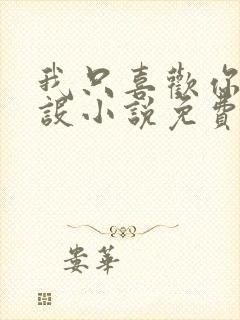 我只喜歡你
設小說免費
娄華